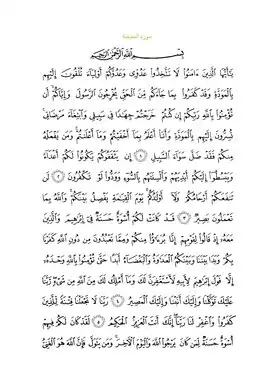 سورة الممتحنة
بِسْمِ ٱللَّهِ ٱلرَّحْمَٰنِ ٱلرَّحِيمِ
يَٰٓأَيُّهَا ٱلَّذِينَ ءَامَنُوا۟ لَا تَتَّخِذُوا۟ عَدُوِّى وَعَدُوَّكُمْ أَوْلِيَآءَ تُلْقُونَ إِلَيْهِم
بِٱلْمَوَدَّةِ وَقَدْ كَفَرُوا۟ بِمَا جَآءَكُم مِّنَ ٱلْحَقِّ يُخْرِجُونَ ٱلرَّسُولَ وَإِيَّاكُمْ أَن
تُؤْمِنُوا۟ بِٱللَّهِ رَبِّكُمْ إِن كُنتُمْ خَرَجْتُمْ جِهَٰدًا فِى سَبِيلِى وَٱبْتِغَآءَ مَرْضَاتِى
تُسِرُّونَ إِلَيْهِم بِٱلْمَوَدَّةِ وَأَنَا۠ أَعْلَمُ بِمَآ أَخْفَيْتُمْ وَمَآ أَعْلَنتُمْ وَمَن يَفْعَلْهُ
مِنكُمْ فَقَدْ ضَلَّ سَوَآءَ ٱلسَّبِيلِ ١ إِن يَثْقَفُوكُمْ يَكُونُوا۟ لَكُمْ أَعْدَآءً
وَيَبْسُطُوٓا۟ إِلَيْكُمْ أَيْدِيَهُمْ وَأَلْسِنَتَهُم بِٱلسُّوٓءِ وَوَدُّوا۟ لَوْ تَكْفُرُونَ ٢ لَن
تَنفَعَكُمْ أَرْحَامُكُمْ وَلَآ أَوْلَٰدُكُمْ يَوْمَ ٱلْقِيَٰمَةِ يَفْصِلُ بَيْنَكُمْ وَٱللَّهُ بِمَا
تَعْمَلُونَ بَصِيرٌ ٣ قَدْ كَانَتْ لَكُمْ أُسْوَةٌ حَسَنَةٌ فِىٓ إِبْرَٰهِيمَ وَٱلَّذِينَ
مَعَهُۥٓ إِذْ قَالُوا۟ لِقَوْمِهِمْ إِنَّا بُرَءَٰٓؤُا۟ مِنكُمْ وَمِمَّا تَعْبُدُونَ مِن دُونِ ٱللَّهِ كَفَرْنَا
بِكُمْ وَبَدَا بَيْنَنَا وَبَيْنَكُمُ ٱلْعَدَٰوَةُ وَٱلْبَغْضَآءُ أَبَدًا حَتَّىٰ تُؤْمِنُوا۟ بِٱللَّهِ وَحْدَهُۥٓ
إِلَّا قَوْلَ إِبْرَٰهِيمَ لِأَبِيهِ لَأَسْتَغْفِرَنَّ لَكَ وَمَآ أَمْلِكُ لَكَ مِنَ ٱللَّهِ مِن شَىْءٍ رَّبَّنَا
عَلَيْكَ تَوَكَّلْنَا وَإِلَيْكَ أَنَبْنَا وَإِلَيْكَ ٱلْمَصِيرُ ٤ رَبَّنَا لَا تَجْعَلْنَا فِتْنَةً لِّلَّذِينَ
كَفَرُوا۟ وَٱغْفِرْ لَنَا رَبَّنَآ إِنَّكَ أَنتَ ٱلْعَزِيزُ ٱلْحَكِيمُ ٥ لَقَدْ كَانَ لَكُمْ فِيهِمْ
أُسْوَةٌ حَسَنَةٌ لِّمَن كَانَ يَرْجُوا۟ ٱللَّهَ وَٱلْيَوْمَ ٱلْءَاخِرَ وَمَن يَتَوَلَّ فَإِنَّ ٱللَّهَ هُوَ ٱلْغَنِىُّ